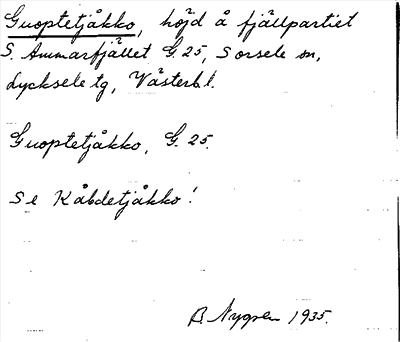 Guoptetjåkko, höjd å fjällpartiet
S. Ammarfjället G. 25, Sorsele sn,
Lycksele tg, Västerb. l.
Guoptetjåkko, G. 25.
Se Kåbdetjåkko!
B Nygren 1935.